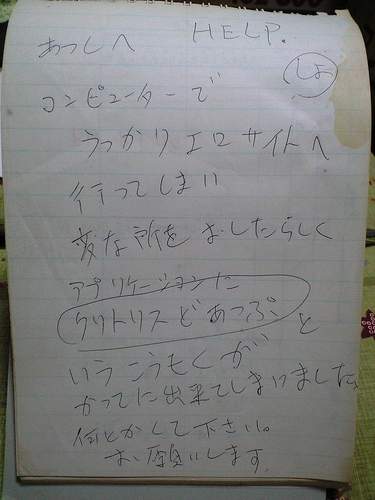 あつしへ HELP.
しよ
コンピューターで
うっかりエロサイトへ
行ってしまい
変な所をおしたらしく
アプリケーションに
クリトリスどあっぷ と
いうこうもくが
かってに出来てしまいました。
何とかして下さい。
お願いします。